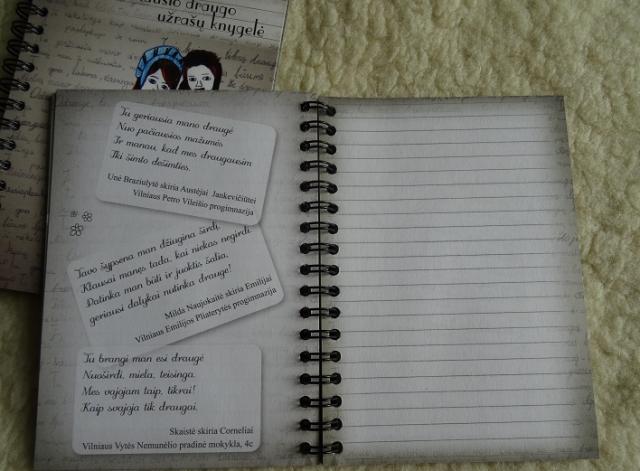 draugo
užrašų knygelė
Tu geriausia mano draugė
Nuo pačiausios mažumės
Ir manau, kad mes draugausim
Iki šimto dešimties.
Unė Braziulytė skiria Austėjai Jankevičiūtei
Vilniaus Petro Vileišio progimnazija
Tavo šypsena man džiugina širdį,
Klausai manęs tada, kai niekas negirdi.
Patinka man būti ir juoktis šalia,
geriausi dalykai nutinka drauge!
Milda Naujokaitė skiria Emilijai
Vilniaus Emilijos Pliaterytės progimnazija
Tu brangi man esi draugė
Nuoširdi, miela, teisinga.
Mes vajojam taip, tikrai!
Kaip svajoja tik draugai.
Skaistė skiria Corneliai
Vilniaus Vytės Nemunėlio pradinė mokykla, 4c